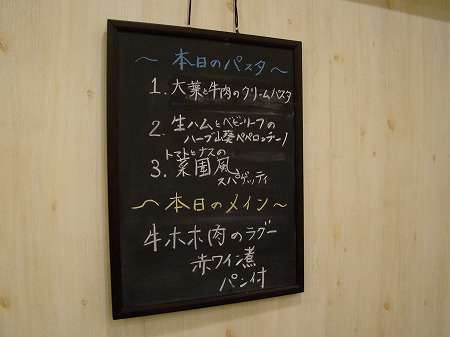 ～本日のパスタ～
1. 大葉と牛肉のクリームパスタ
2. 生ハムとベビーリーフの
ハーブ山葵ペペロンチーノ
トマトとナスの
3. 菜園風
スパゲッティ
～本日のメイン～
牛ホホ肉のラグー
赤ワイン煮
パン付